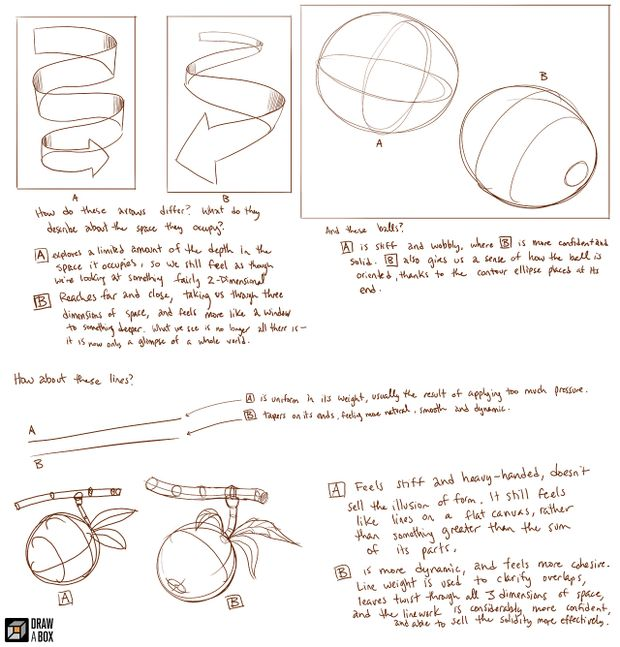 A
B
How do these arrows differ? What do they
describe about the space they occupy?
A explores a limited amount of the depth in the
space it occupies, so we still feel as though
we're looking at something fairly 2-Dimensional
B Reaches far and close, taking us through three
dimensions of space, and feels more like a window
to something deeper. What we see is no longer all there is-
it is now only a glimpse of a whole world.
A
B
And these balls?
A is stiff and wobbly, where B is more confident and
solid. B also gives us a sense of how the ball is
oriented, thanks to the contour ellipse placed at its
end.
How about these lines?
A
B
A is uniform in its weight, usually the result of applying too much pressure.
B tapers on its ends, feeling more natural, smooth and dynamic.
A
B
A Feels stiff and heavy-handed, doesn't
sell the illusion of form. It still feels
like lines on a flat canvas, rather
than something greater than the sum
of its parts.
B is more dynamic, and feels more cohesive.
Line weight is used to clarify overlaps,
leaves twist through all 3 dimensions of space,
and the linework is considerably more confident,
and able to sell the solidity more effectively.
DRAW
A BOX